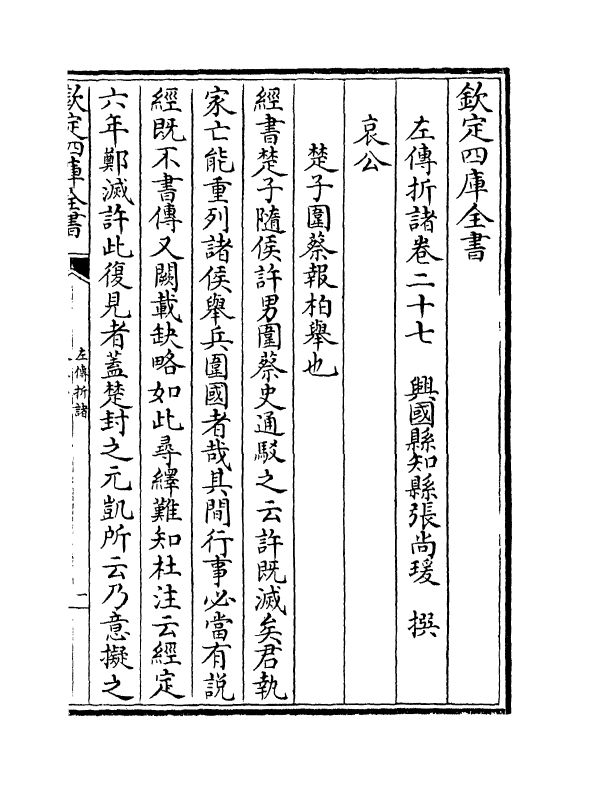 欽定四庫全書
左傳折諸卷二十七　興國縣知縣張尚瑗　撰
哀公
楚子圍蔡報柏舉也
經書楚子隨侯許男圍蔡史通駁之云許既滅矣君執
家亡能重列諸侯舉兵圍國者哉其間行事必當有説
經既不書傳又闕載缺略如此尋繹難知杜注云經定
六年鄭滅許此復見者蓋楚封之元凱所云乃意擬之
欽定四庫全書
左傳折諸